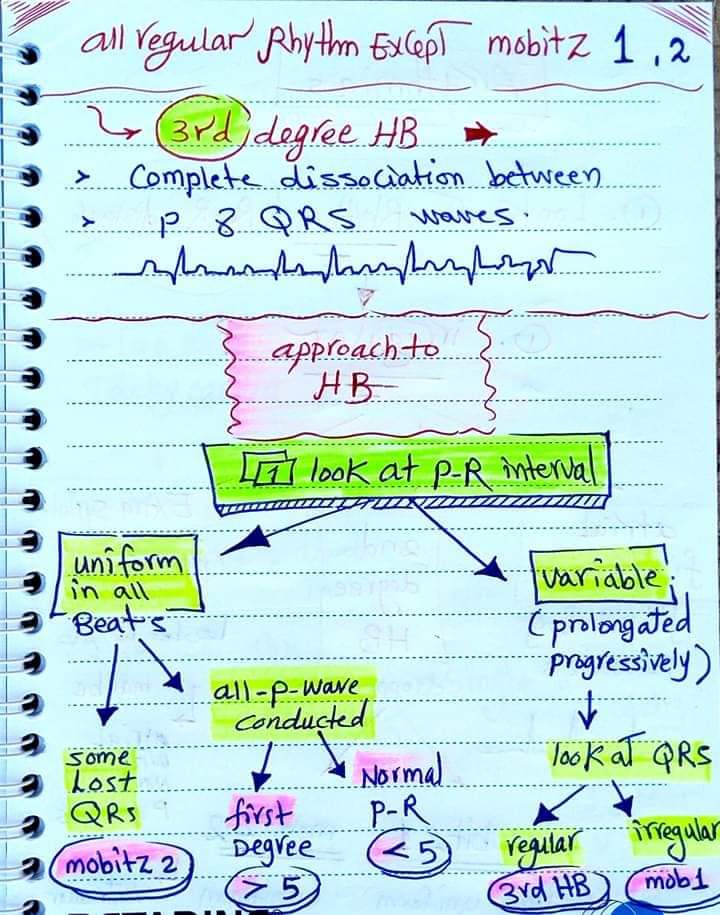 all regular Rhythm Except mobitz 1,2
3rd degree HB
> Complete dissociation between
> P & QRS waves.
approach to
HB
1 look at P-R interval
uniform
in all
Beats
variable
(prolongated
progressively)
all-p-wave
conducted
look at QRS
some
Lost
QRs
mobitz 2
first
Degree
> 5
Normal
P-R
< 5
regular
3rd HB
irregular
mob1